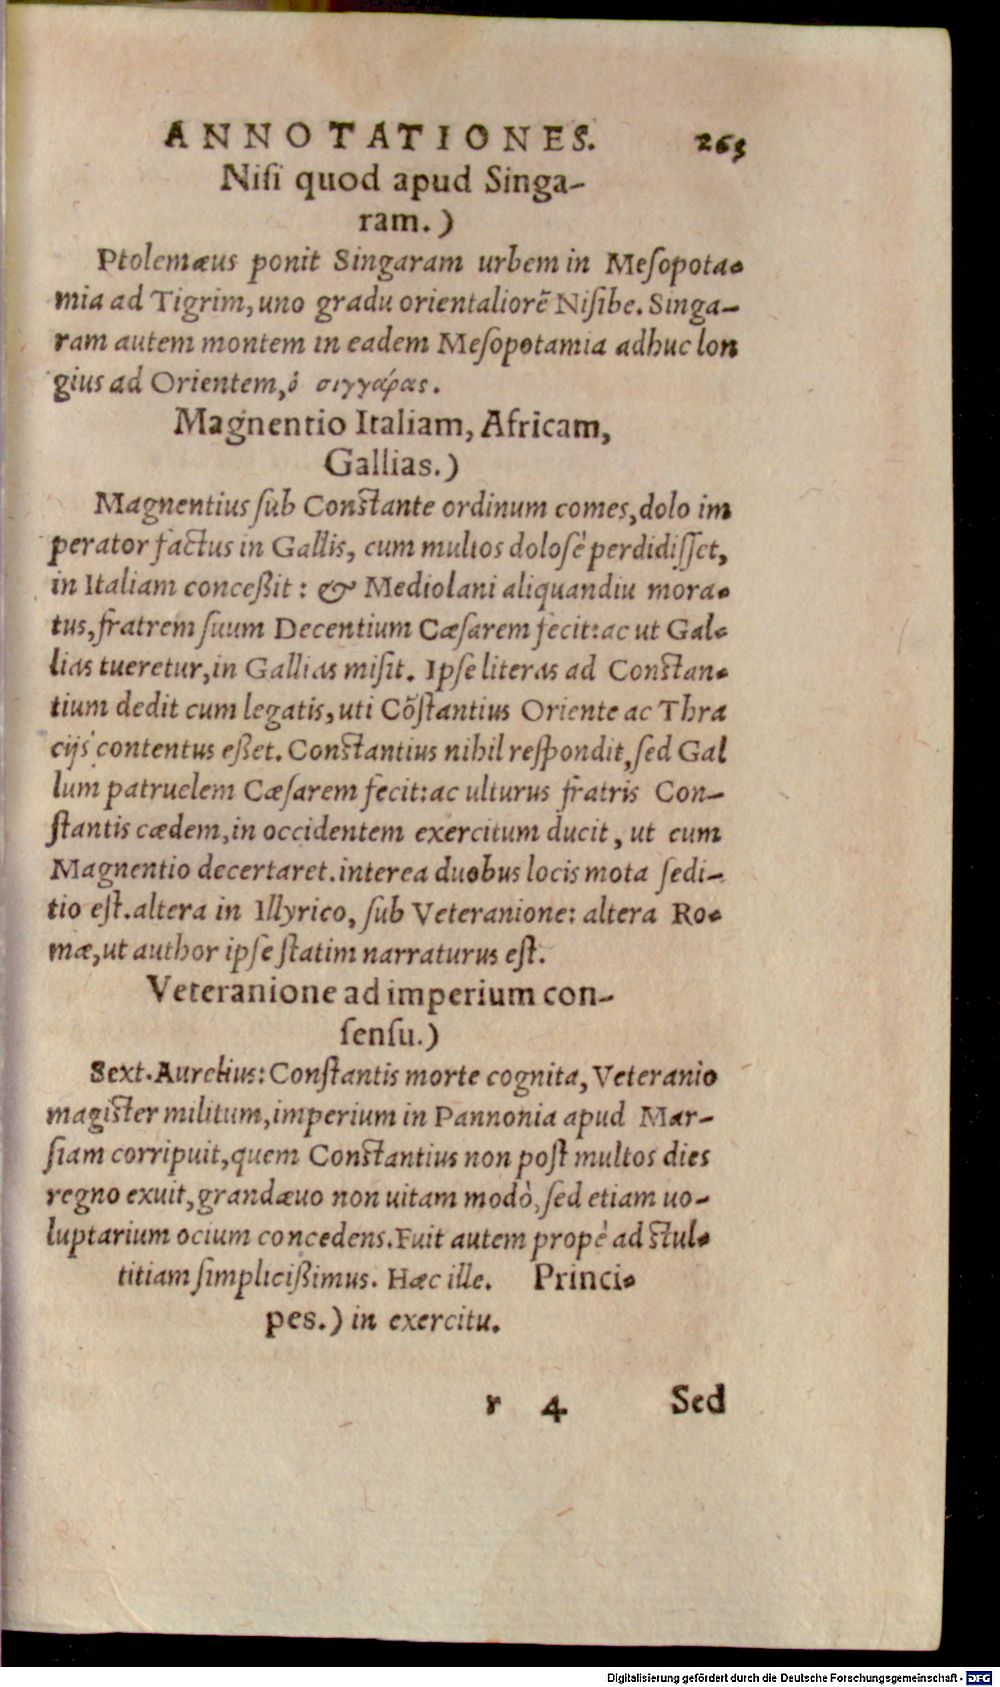 ANNOTATIONES. 263
Niſi quod apud Singa-
ram.)
Ptolemæus ponit Singaram urbem in Meſopota-
mia ad Tigrim, uno gradu orientaliorē Niſibe. Singa-
ram autem montem in eadem Meſopotamia adhuc lon
gius ad Orientem, ὁ σιγγάρας.
Magnentio Italiam, Africam,
Gallias.)
Magnentius ſub Conſtante ordinum comes, dolo im
perator factus in Gallis, cum multos doloſè perdidiſſet,
in Italiam conceßit: & Mediolani aliquandiu mora-
tus, fratrem ſuum Decentium Cæſarem fecit: ac ut Gal-
lias tueretur, in Gallias miſit. Ipſe literas ad Conſtan-
tium dedit cum legatis, uti Cōſtantius Oriente ac Thra
cijs contentus eßet. Conſtantius nihil reſpondit, ſed Gal
lum patruelem Cæſarem fecit: ac ulturus fratris Con-
ſtantis cædem, in occidentem exercitum ducit, ut cum
Magnentio decertaret. interea duobus locis mota ſedi-
tio eſt. altera in Illyrico, ſub Veteranione: altera Ro-
mæ, ut author ipſe ſtatim narraturus eſt.
Veteranione ad imperium con-
ſenſu.)
Sext. Aurelius: Conſtantis morte cognita, Veteranio
magiſter militum, imperium in Pannonia apud Mar-
ſiam corripuit, quem Conſtantius non poſt multos dies
regno exuit, grandæuo non uitam modò, ſed etiam uo-
luptarium ocium concedens. Fuit autem propè ad ſtul-
titiam ſimplicißimus. Hæc ille. Princi-
pes.) in exercitu.
r 4 Sed
Digitalisierung gefördert durch die Deutsche Forschungsgemeinschaft - DFG